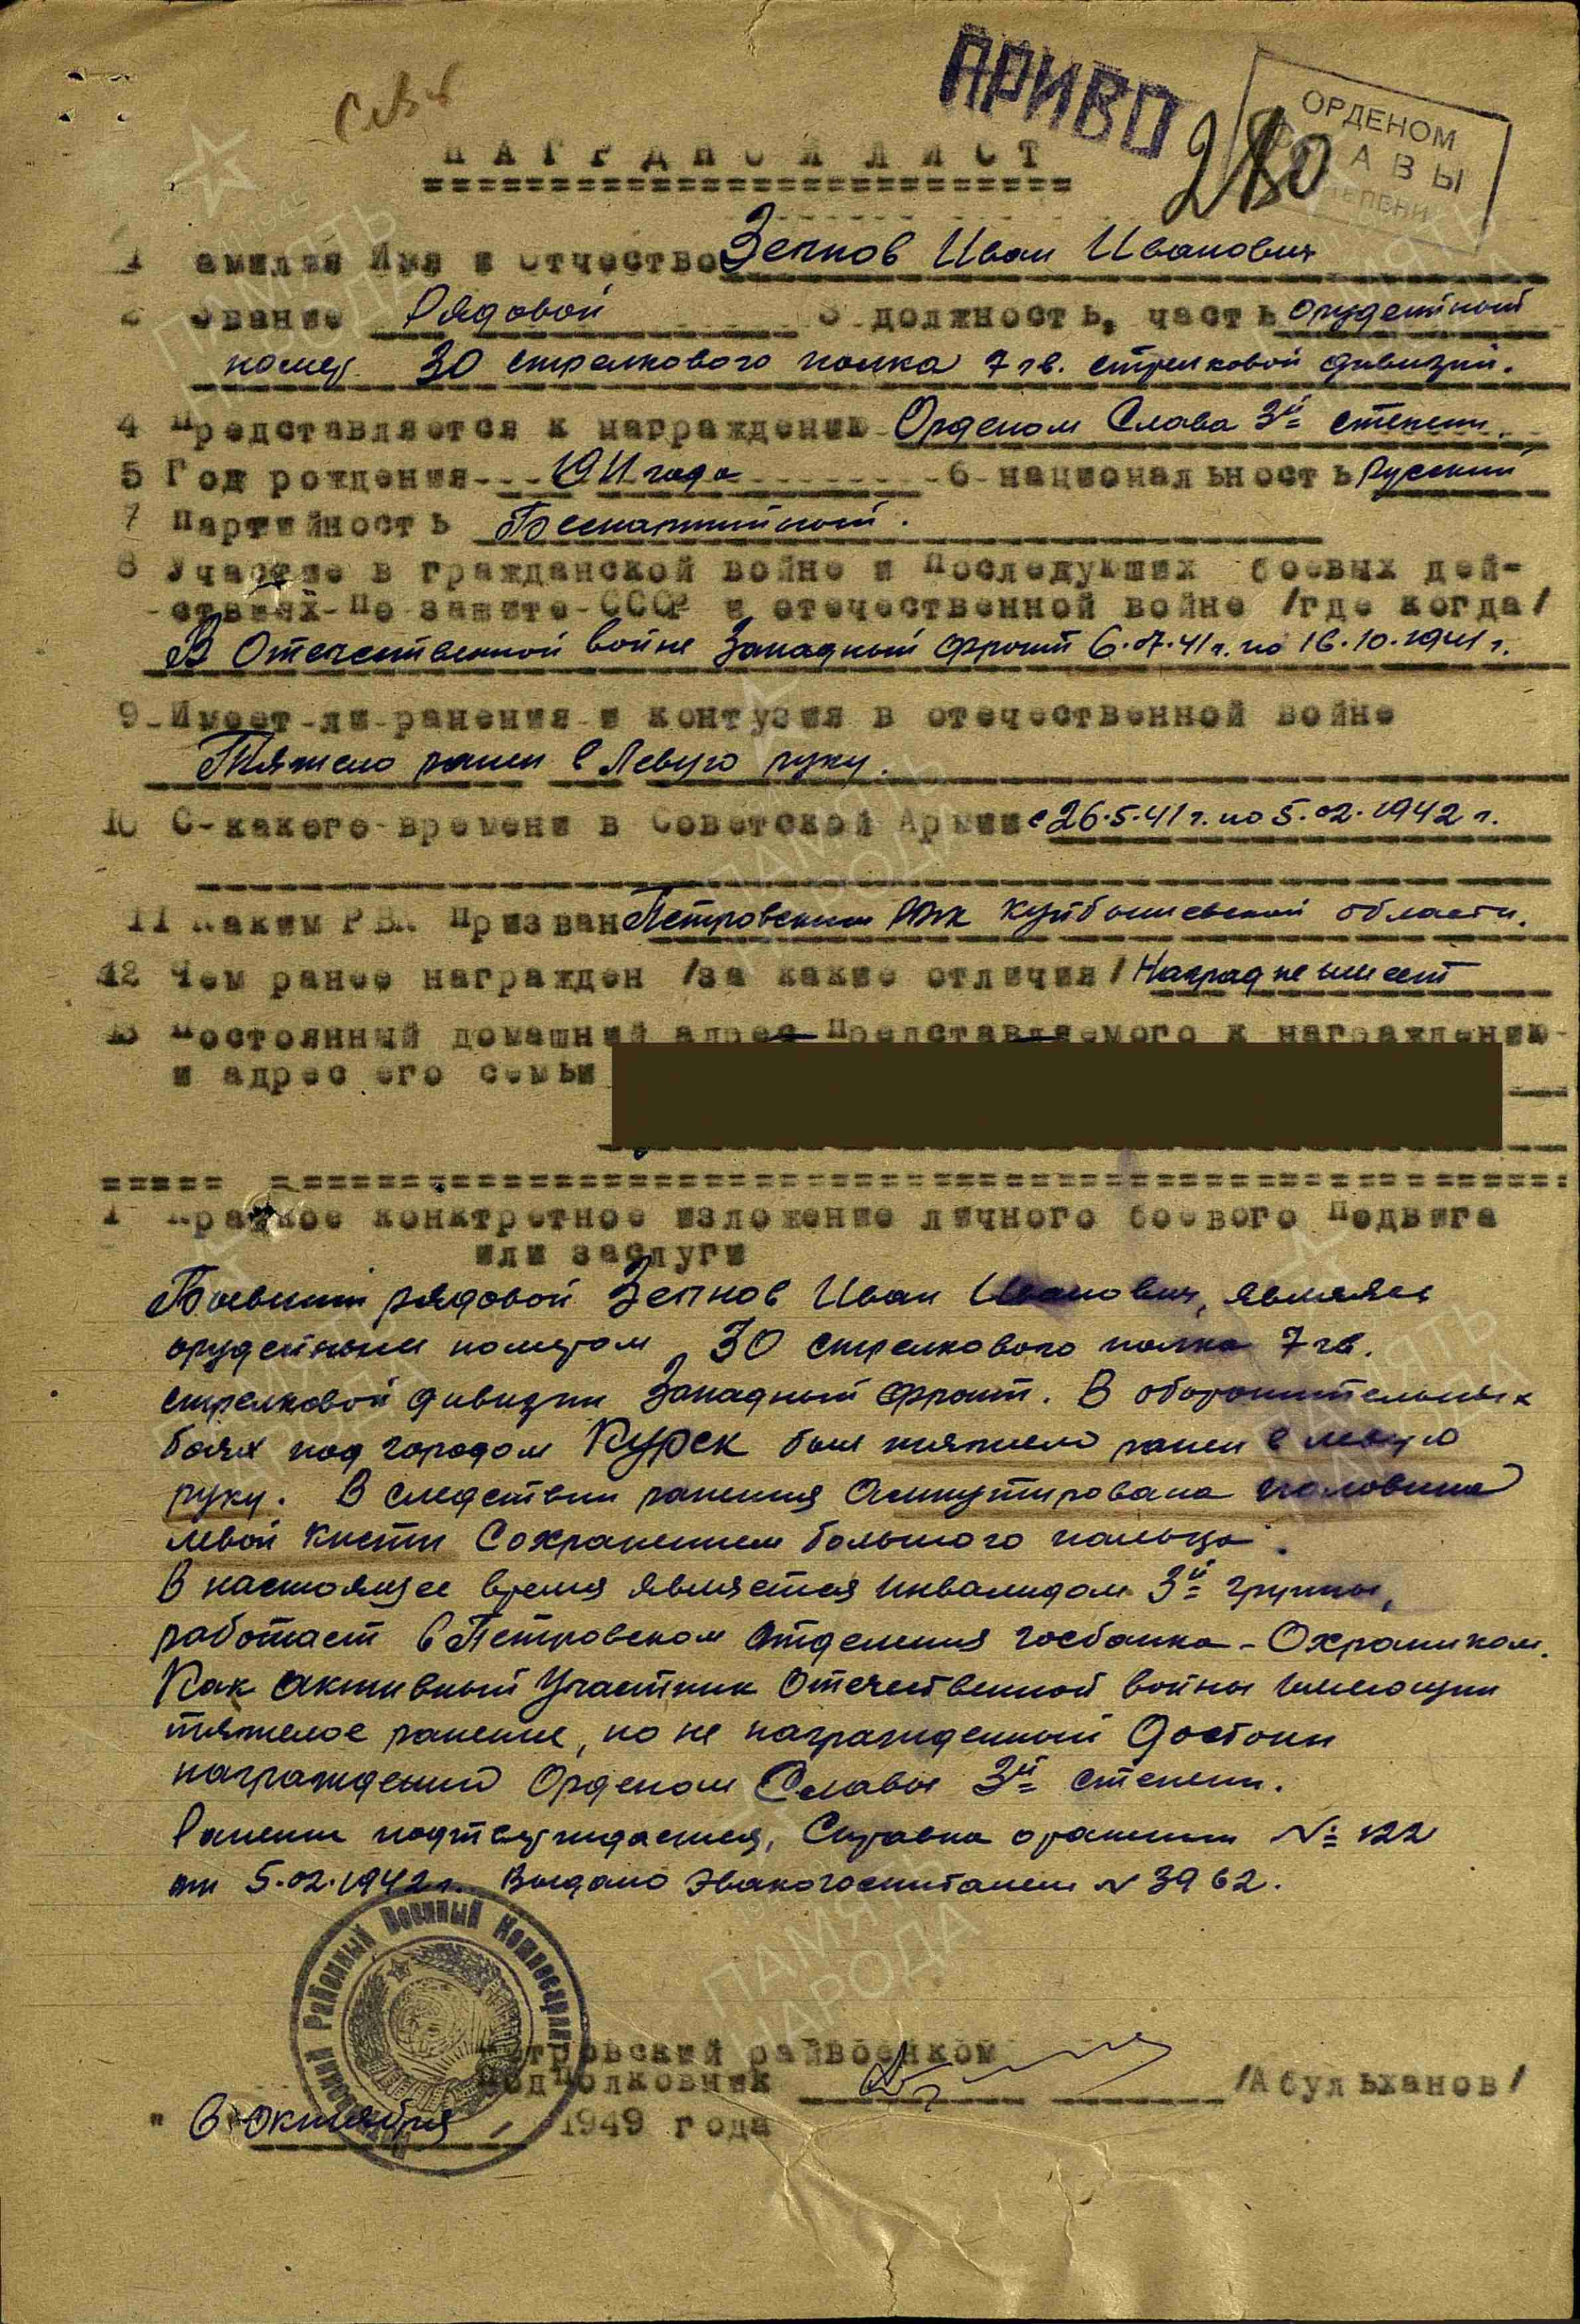 ПРИВО
280
ОРДЕНОМ
СЛАВЫ
СТЕПЕНИ
НАГРАДНОЙ ЛИСТ
1 амилия Имя и Отчество Зепнов Иван Иванович
2 Звание Рядовой 3 должность, часть орудейный
номер 30 стрелкового полка 7 гв. стрелковой дивизии.
4 Представляется к награждению Орденом Слава 3й степени.
5 Год рождения 1911 года 6 национальность Русский
7 Партийность Беспартийный.
8 Участие в гражданской войне и последующих боевых дей-
ствиях по защите СССР и отечественной войне /где когда/
В Отечественной войне Западный фронт 6.07.41 г. по 16.10.1941 г.
9 Имеет ли ранения и контузия в отечественной войне
Тяжело ранен в Левую руку.
10 С какого времени в Советской Армии с 26.5.41 г. по 5.02.1942 г.
11 Каким РВК призван Петровским РВК Куйбышевской области.
12 Чем ранее награжден /за какие отличия/ Наград не имеет
13 Постоянный домашний адрес представляемого к награждению
и адрес его семьи
1 Краткое конктретное изложение личного боевого подвига
или заслуги
Бывший рядовой Зепнов Иван Иванович, являясь
орудейным номером 30 стрелкового полка 7 гв.
стрелковой дивизии Западный фронт. В оборонительных
боях под городом Курск был тяжело ранен в левую
руку. В следствии ранения Ампутирована половина
левой кисти Сохранением большого пальца.
В настоящее время является инвалидом 3й группы,
работает в Петровском отделения госбанка - Охраником.
Как активный Участник Отечественной войны имеющий
тяжелое ранение, но не награжденный Достоин
награждений Орденом Славы 3й степени.
Ранени подтверждается, Справка о ранении № 122
от 5.02.1942 г. Выдано Эвакогоспиталем № 3962.
Петровский Районный Военный Комиссариат
Петровский райвоенком
подполковник /Абульханов/
" 6 октября 1949 года
ПАМЯТЬ
НАРОДА